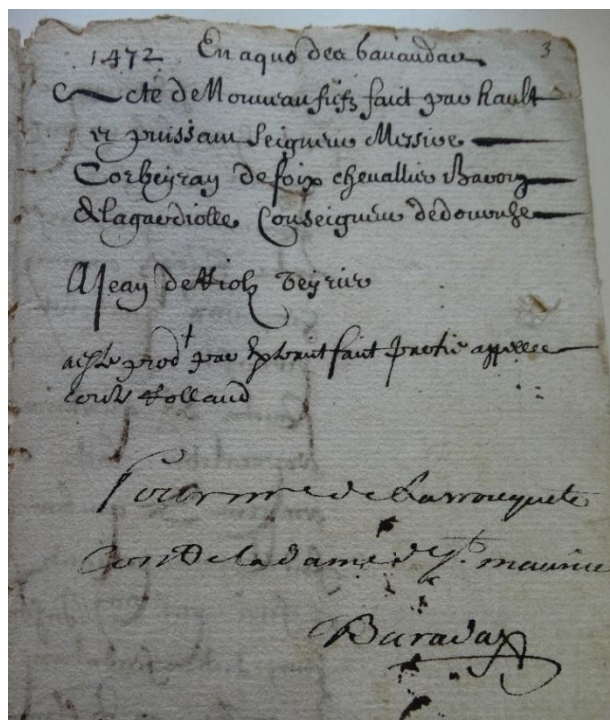 1472 En aquo dea bauandac 3
Acte de Nouveau fiefz faict par hault
et puissant Seigneur Messire
Corbeyran de foix chevallier Baron
de lagardiolle Conseigneur de dournhe
A Jean de Viol Teyrier
prod^t par exploit faict partie appellee
contre Rolland
Pour mre de Larrouquete
Con^e De la dame de S^t. maurice
Baradat